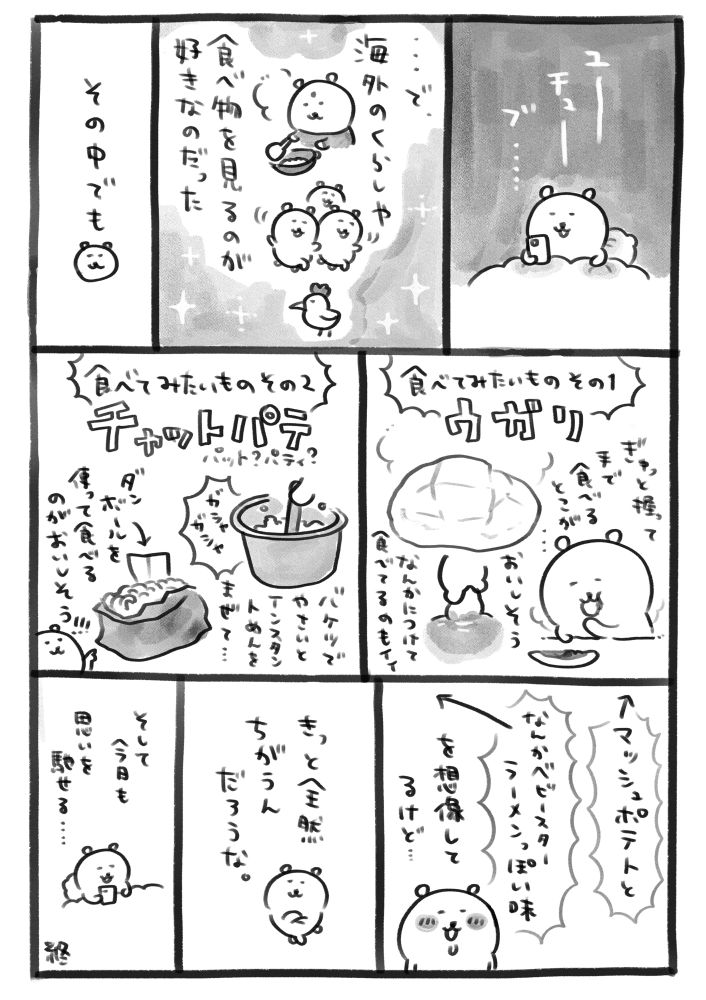 ユーー
チューー
ブ……
…で、
海外のくらしや
食べ物を見るのが
好きなのだった
その中でも
食べてみたいもの その1
ウガリ
ぎゅっと握って
手で
食べる
とこが…
おいしそう
なんかにつけて
食べてるのもイイ
食べてみたいもの その2
チャットパテ
パット？パティ？
ガシャ
ガシャ
バケツで
やさいと
インスタン
トめんを
まぜて…
ダン
ボールを
使って食べる
のがおいしそう!!!
↑マッシュポテトと
なんかベビースター
ラーメンっぽい味
を想像して
るけど…
きっと全然
ちがうん
だろうな。
そして
今日も
思いを
馳せる……
終